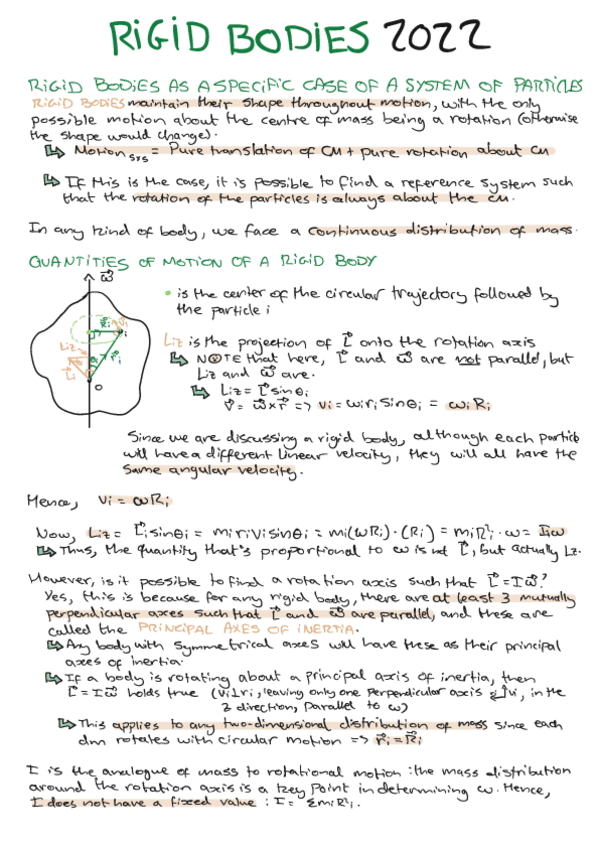 RIGID BODIES 2022
RIGID BODIES AS A SPECIFIC CASE OF A SYSTEM OF PARTICLES
RIGID BODIES maintain their shape throughout motion, with the only
possible motion about the centre of mass being a rotation (otherwise
the shape would change).
↳ Motion sys = Pure translation of CM + pure rotation about CM
↳ If this is the case, it is possible to find a reference system such
that the rotation of the particles is always about the CM.
In any kind of body, we face a continuous distribution of mass.
QUANTITIES OF MOTION OF A RIGID BODY
ω⃗
• is the center of the circular trajectory followed by
the particle i
Liz is the projection of L⃗ onto the rotation axis
↳ NOTE that here, L⃗ and ω⃗ are not parallel, but
Liz and ω⃗ are.
↳ Liz = L⃗ sinθi
v⃗ = ω⃗ × r⃗ => vi = ωi ri sinθi = ωi Ri
Liz
L⃗i
r⃗i
i
O
Since we are discussing a rigid body, although each particle
will have a different linear velocity, they will all have the
same angular velocity.
Hence, vi = ωRi
Now, Liz = L⃗i sinθi = mi ri vi sinθi = mi(ωRi)·(Ri) = miR²i · ω = Iiω
↳ Thus, the quantity that's proportional to ω is not L⃗, but actually Lz.
However, is it possible to find a rotation axis such that L⃗ = Iω⃗?
Yes, this is because for any rigid body, there are at least 3 mutually
perpendicular axes such that L⃗ and ω⃗ are parallel, and these are
called the PRINCIPAL AXES OF INERTIA.
↳ Any body with symmetrical axes will have these as their principal
axes of inertia.
↳ If a body is rotating about a principal axis of inertia, then
L⃗ = Iω⃗ holds true (vi⊥ri, leaving only one perpendicular axis , in the
z direction, parallel to ω)
↳ This applies to any two-dimensional distribution of mass since each
dm rotates with circular motion => r⃗i = R⃗i
I is the analogue of mass to rotational motion: the mass distribution
around the rotation axis is a key point in determining ω. Hence,
I does not have a fixed value : I = ΣmiR²i.